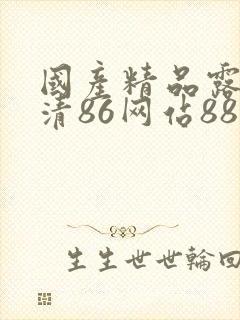 國産精品露
清86网佔88
生生世世輪回